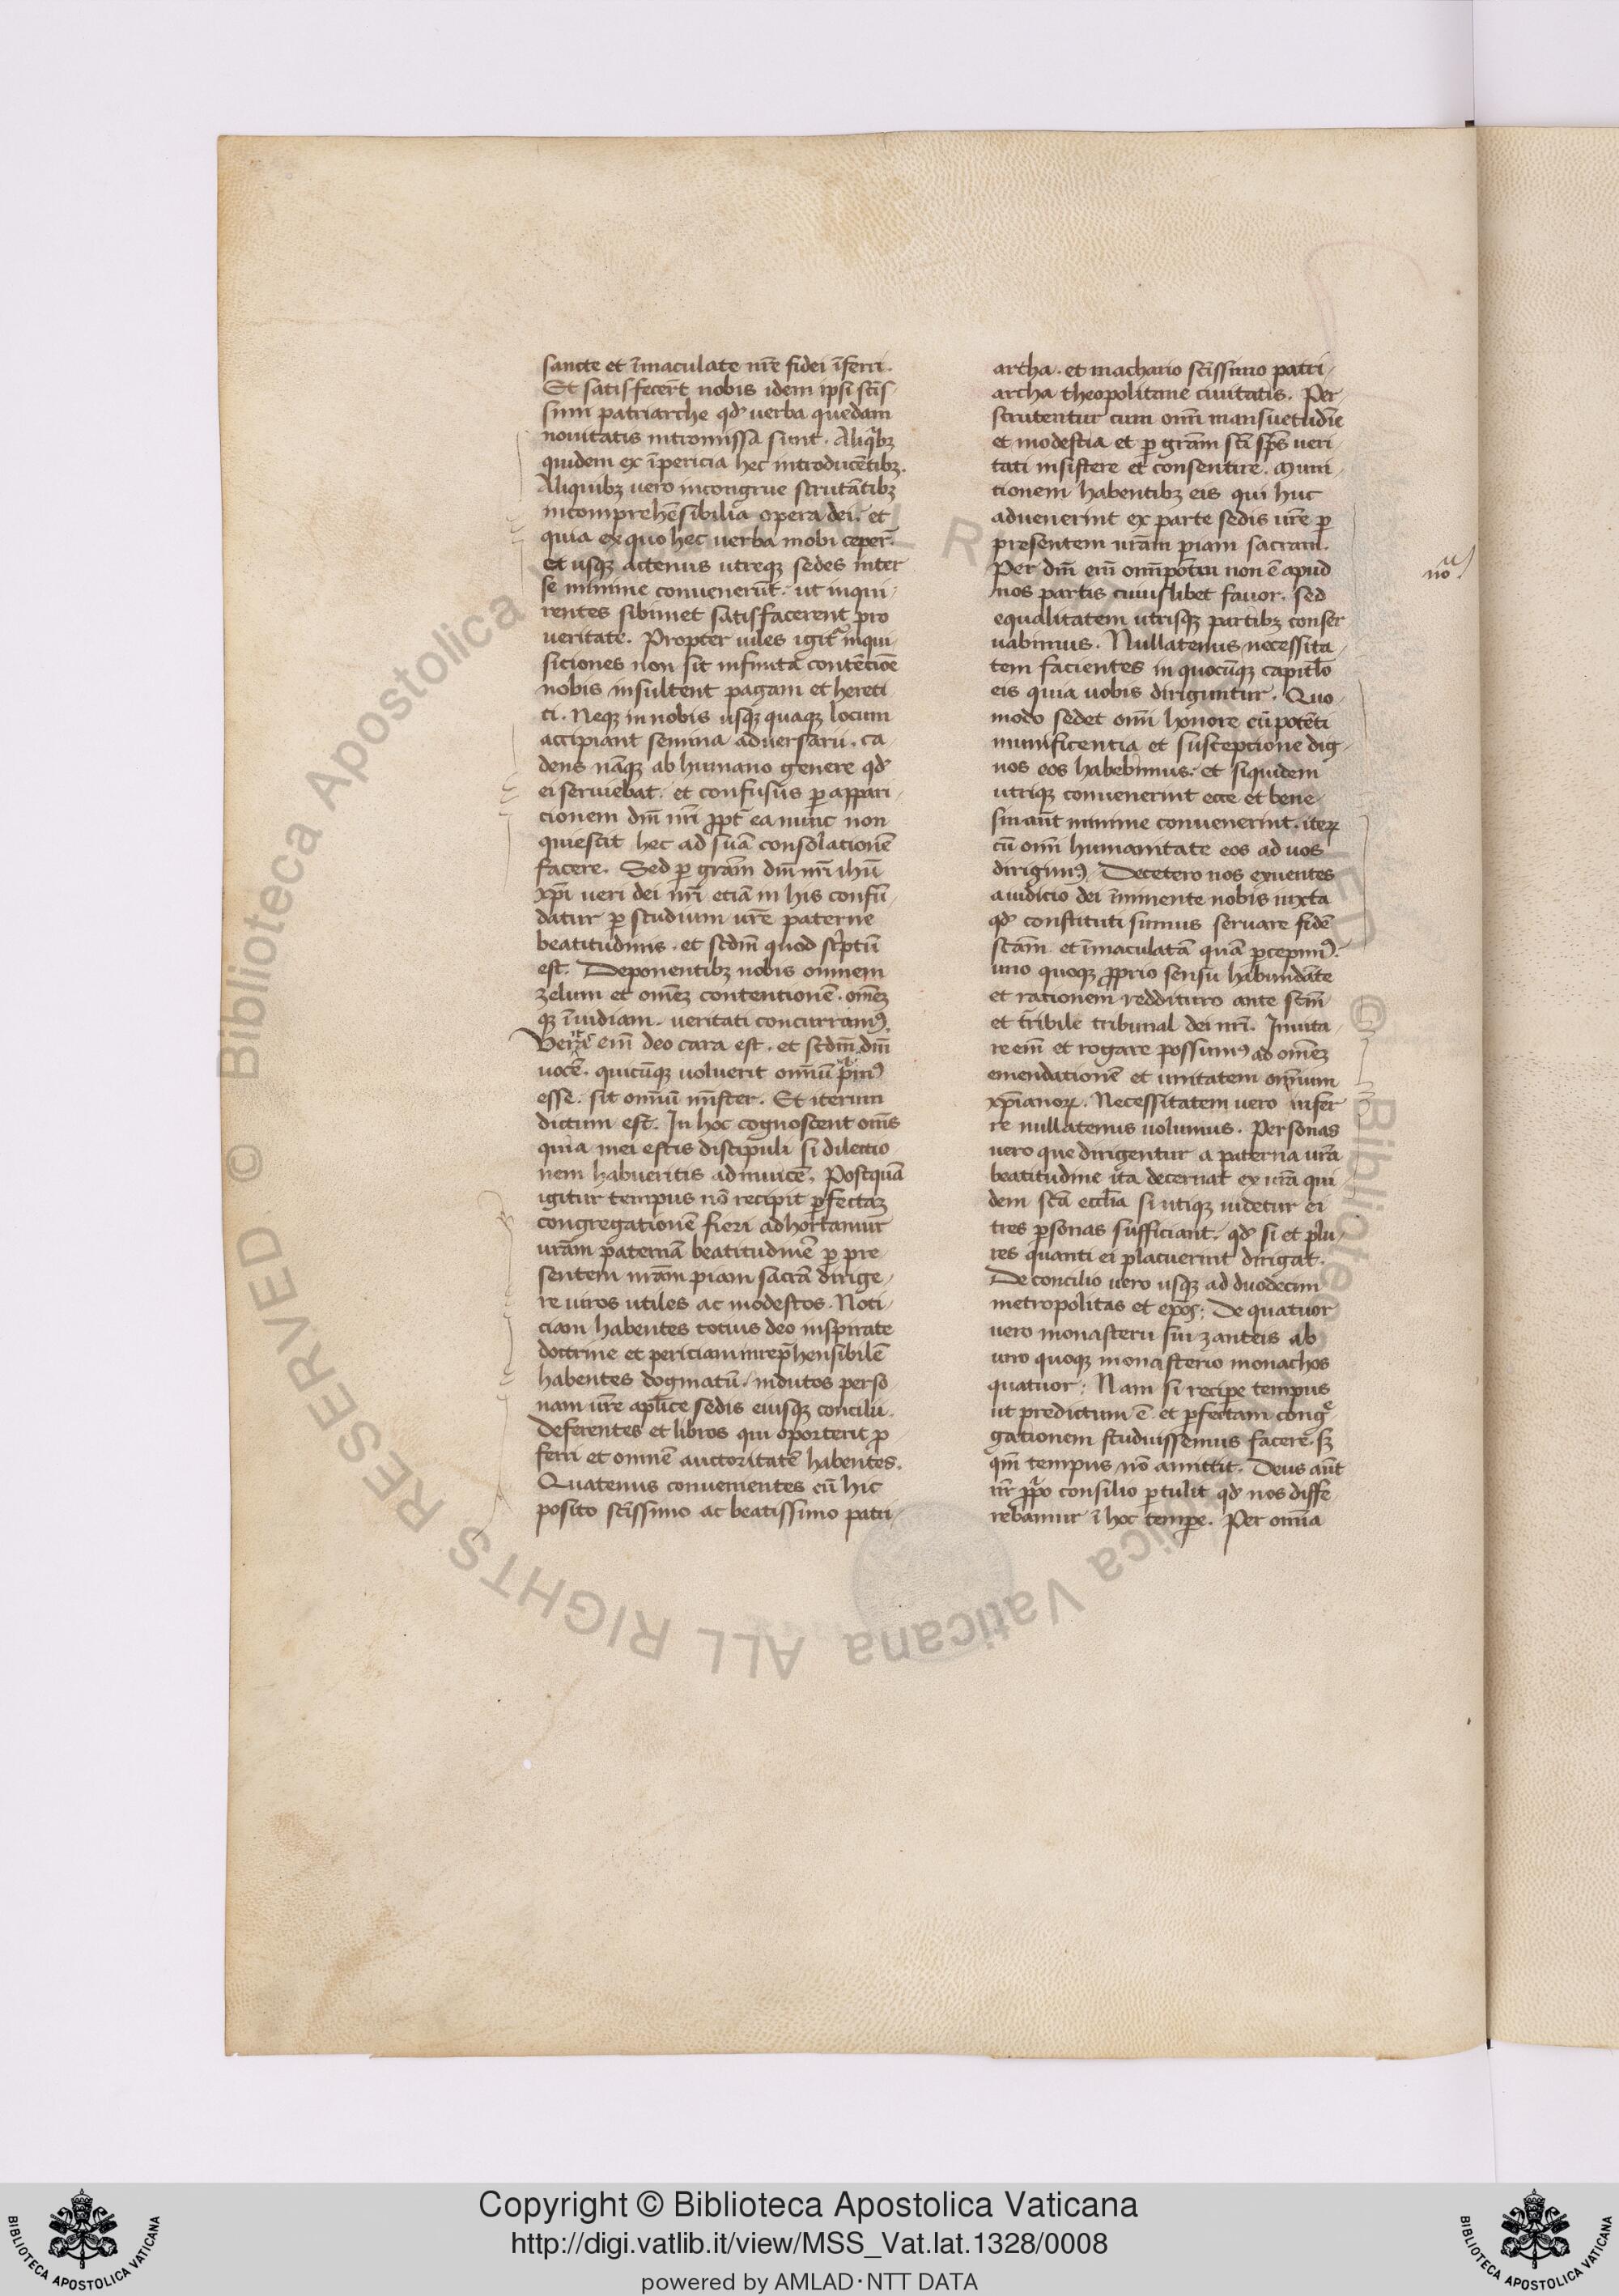 sancte et īmaculate nr̄e fidei īferri.
Et satisfecer̄t nobis idem ipsi sc̄is
simi patriarche qd' uerba quedam
nouitatis intromissa sunt. Aliq̄bꝫ
quidem ex īpericia hec introducētibꝫ.
Aliquibꝫ uero incongrue scrutātibꝫ
incomprehēsibilia opera dei. et
quia ex quo hec uerba mobi ceper̄.
et usqꝫ actenus utreqꝫ sedes inter
se minime conuenerūt. ut inqui
rentes sibimet satisfacerent pro
ueritate. Propter uiles igitͬ inqui
siciones non sit infinita contēcioē
nobis insultent pagani et hereti
ci. Neqꝫ in nobis usqꝫ quaqꝫ locum
accipiant semina aduersarii. ca
dens nāqꝫ ab humano genere qd'
ei seruiebat. et confusus ꝑ appari
cionem dn̄i nr̄i ꝓpt̄ ea nunc non
quiescit hec ad suā consolationē
facere. Sed ꝑ grām dn̄i nr̄i ihū
xp̄i ueri dei nr̄i eciā in his confū
datur ꝑ studium ur̄e paterne
beatitudinis. et scdm̄ quod sc̄ptū
est. Deponentibꝫ nobis omnem
zelum et om̄eꝫ contentionē. om̄eꝫ
qꝫ īuidiam. ueritati concurramꝰ.
em̄ deo cara est. et scdm̄ dn̄i
uocē. quicūqꝫ uoluerit om̄iū p̄mꝰ
esse. sit om̄iū mīster. Et iterum
dictum est. In hoc cognoscent om̄s
quia mei estis discipuli si dilectio
nem habueritis adinuicē. Postquā
igitur tempus nō recipit ꝑfectaꝫ
congregationē fieri adhortamur
urām paternā beatitudinē ꝑ pre
sentem nrām piam sacrā dirige
re uiros utiles ac modestos. Noti
ciam habentes totius deo inspirate
doctrine et periciam inrep̄hensibilē
habentes dogmatū. indutos perso
nam ur̄e apl̄ice sedis eiusqꝫ concilii.
Deferentes et libros qui oporterit ꝓ
ferri et omnē auctoritatē habentes.
Quatenus conuenientes cū hic
posito sc̄issimo ac beatissimo patri
artha. et machario sc̄issimo patri
archa theopolitane ciuitatis. Per
scrutentur cum om̄i mansuetudīe
et modestia et ꝑ grām sc̄i sp̄s ueri
tati insistere et consentire. Muni
tionem habentibꝫ eis qui huc
aduenerint ex parte sedis ur̄e ꝑ
presentem nrām piam sacram.
Per dm̄ em̄ om̄ipotēm non ē apud
nos partis cuiuslibet fauor. sed
equalitatem utrisqꝫ partibꝫ conser
uabimus. Nullatenus necessita
tem facientes in quocūqꝫ capitlo
eis quia uobis diriguntur. Quo
modo sedet om̄i honore cū potēti
munificentia et suscepcione dig
nos eos habebimus. et siquidem
utriqꝫ conuenerint ecce et bene.
sin aūt minime conuenerint. iteꝝ
cū om̄i humanitate eos ad uos
dirigimꝰ. Decetero nos exuentes
a iudicio dei īminente nobis iuxta
qd' constituti sumus seruare fidē
sc̄am et īmaculatā quā ꝑcepimꝰ.
uno quoqꝫ ꝓprio sensu habundāte
et rationem reddituro ante scm̄
et tr̄ibile tribunal dei nr̄i. Inuita
re em̄ et rogare possumꝰ ad om̄eꝫ
emendationē et unitatem omnium
xp̄ianoꝝ. Necessitatem uero infer
re nullatenus uolumus. Personas
uero que dirigentur a paterna ur̄a
beatitudine ita decernat ex nrā qui
dem sc̄a eccl̄ia si utiqꝫ uidetur ei
tres ꝑsonas sufficiant. qd' si et plu
res quanti ei placuerint dirigat.
De concilio uero usqꝫ ad duodecim
metropolitas et ep̄os; De quatuor
uero monasteriis suī zanteis ab
uno quoqꝫ monasterio monachos
quatuor; Nam si recipe tempus
ut predictum ē et ꝑfectam congͤ
gationem studuissemus facere. sꝫ
qm̄ tempus nō amittit. Deus aūt
nr̄ ꝓpͦ consilio ꝑtulit qd' nos diffe
rebamur ī hoc tempe. Per omīa
no
Copyright © Biblioteca Apostolica Vaticana
http://digi.vatlib.it/view/MSS_Vat.lat.1328/0008
powered by AMLAD·NTT DATA
BIBLIOTECA APOSTOLICA VATICANA
BIBLIOTECA APOSTOLICA VATICANA
© Biblioteca Apostolica Vaticana ALL RIGHTS RESERVED